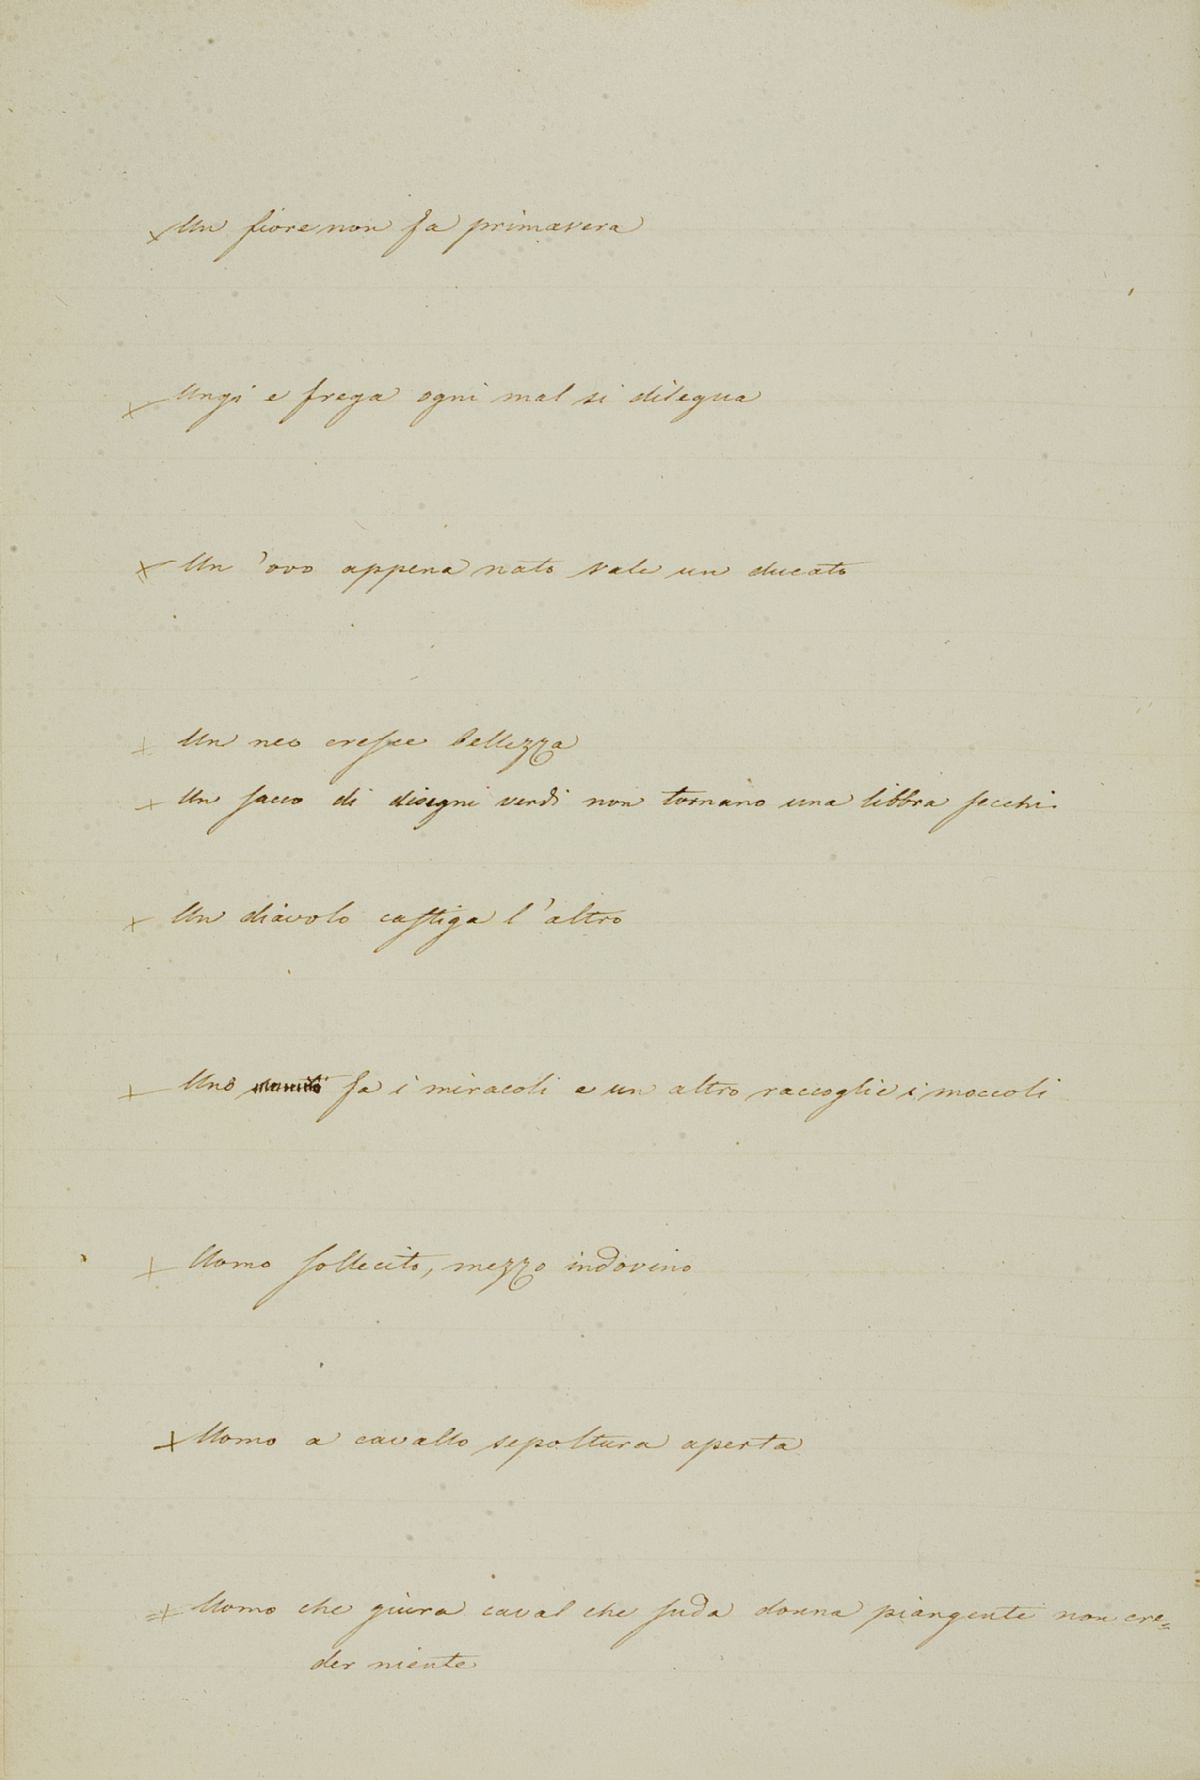 Un fiore non fa primavera
Ungi e frega ogni mal si dilegua
Un 'ovo appena nato vale un ducato
Un neo cresce bellezza
Un sacco di disegni verdi non tornano una libbra secchi.
Un diavolo castiga l'altro
Uno fa i miracoli e un altro raccoglie i moccoli
Uomo sollecito, mezzo indovino
Uomo a cavallo sepoltura aperta
Uomo che giura caval che suda donna piangente non cre=
der niente